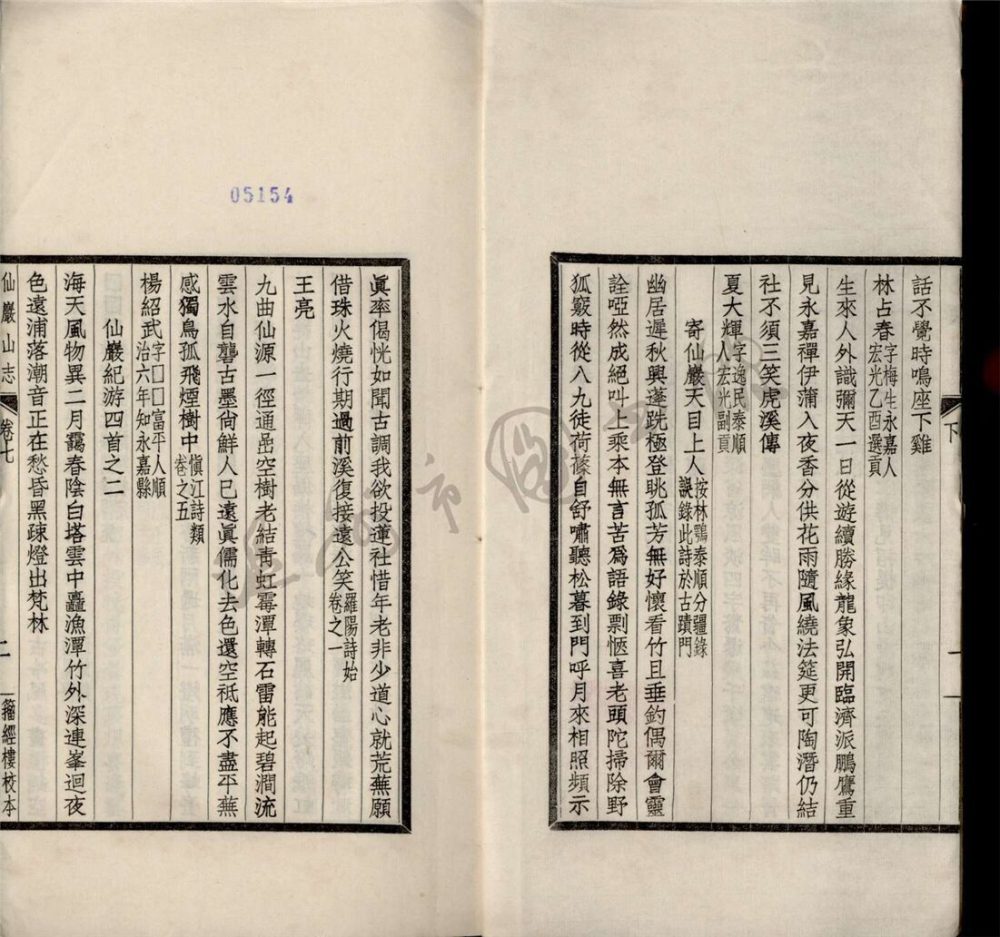 話不覺時鳴座下雞
林占春字梅生永嘉人宏光乙酉選貢
生來人外識彌天一日從遊續勝緣龍象弘開臨濟派鵬鷹重
見永嘉禪伊蒲入夜香分供花雨隨風繞法筵更可陶潛仍結
社不須三笑虎溪傳
夏大輝字逸民泰順人宏光副貢
寄仙巖天目上人按林鶚泰順分疆錄誤錄此詩於古蹟門
幽居遲秋興蓬跣極登眺孤芳無好懷看竹且垂釣偶爾會靈
詮啞然成絕叫上乘本無言苦爲語錄剽愜喜老頭陀掃除野
狐竅時從八九徒荷蓧自舒嘯聽松暮到門呼月來相照頻示
下
一
眞率偈恍如聞古調我欲投蓮社惜年老非少道心就荒蕪願
借珠火燒行期過前溪復接遠公笑羅陽詩始卷之一
王亮
九曲仙源一徑通嵒空樹老結靑虹霉潭轉石雷能起碧澗流
雲水自聾古墨尙鮮人已遠眞儒化去色還空祇應不盡平蕪
感獨鳥孤飛煙樹中愼江詩類卷之五
楊紹武字囗囗富平人順治六年知永嘉縣
仙巖紀游四首之二
海天風物異二月靄春陰白塔雲中矗漁潭竹外深連峯迴夜
色遠浦落潮音正在愁昏黑疎燈出梵林
仙巖山志
卷七
二
籀經樓校本
05154